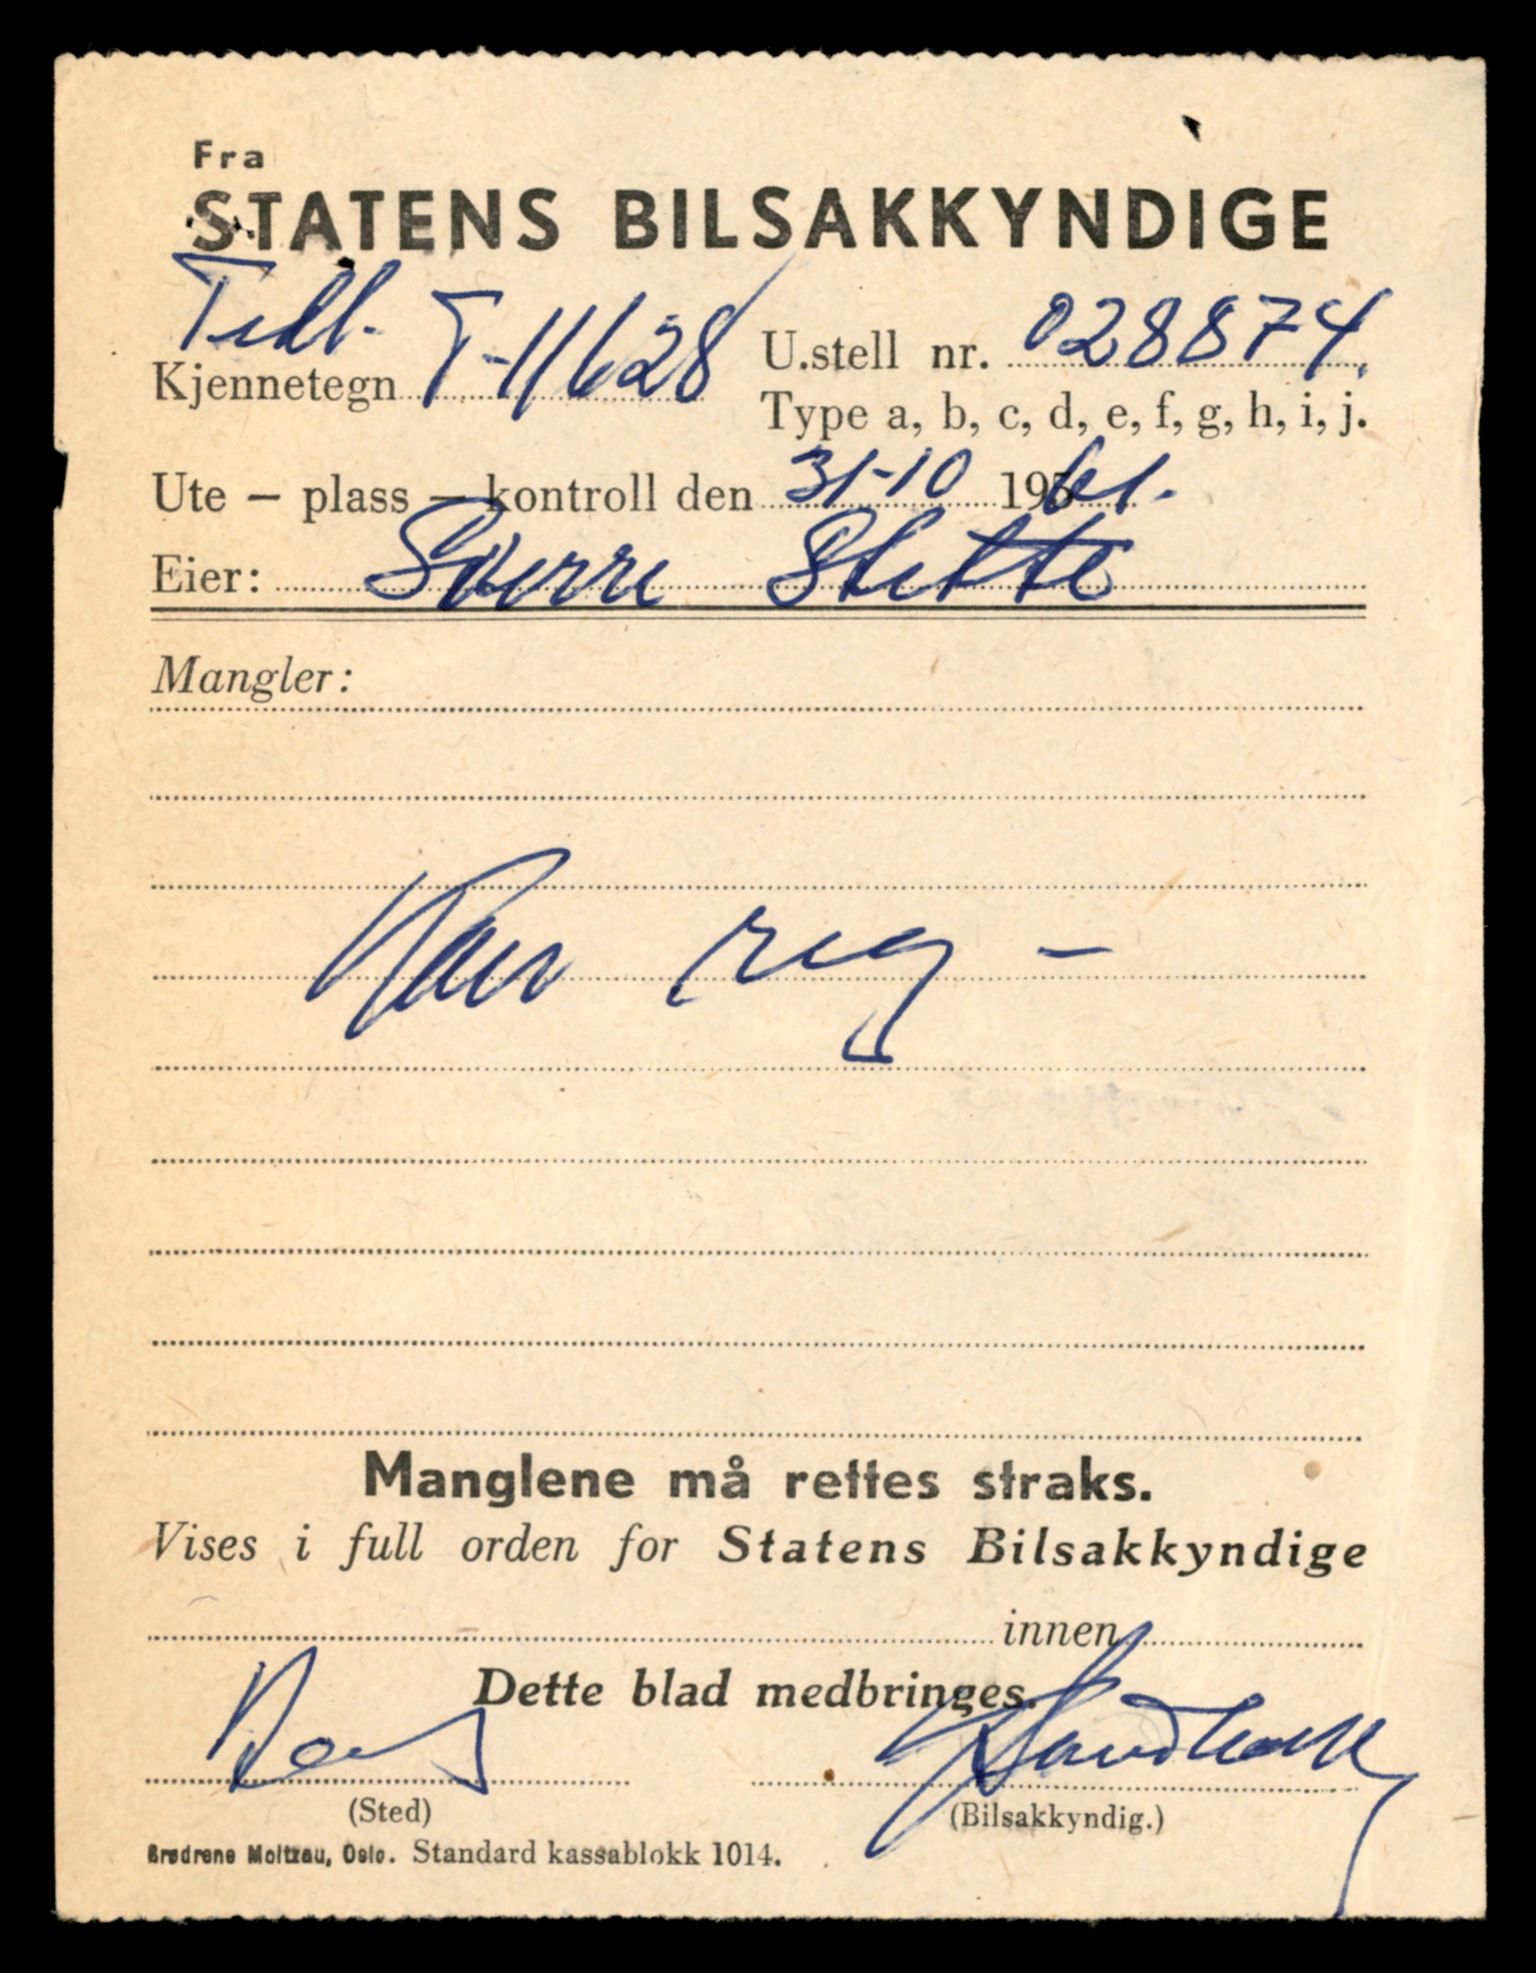 Fra
STATENS BILSAKKYNDIGE
Tidl.
Kjennetegn T-11628 U.stell nr. 028874.
Type a, b, c, d, e, f, g, h, i, j.
Ute – plass – kontroll den 31-10 1961.
Eier: Sverre Stette
Mangler:
Kan reg –
Manglene må rettes straks.
Vises i full orden for Statens Bilsakkyndige
innen
Dette blad medbringes.
(Sted) (Bilsakkyndig.)
Brødrene Moltzau, Oslo. Standard kassablokk 1014.